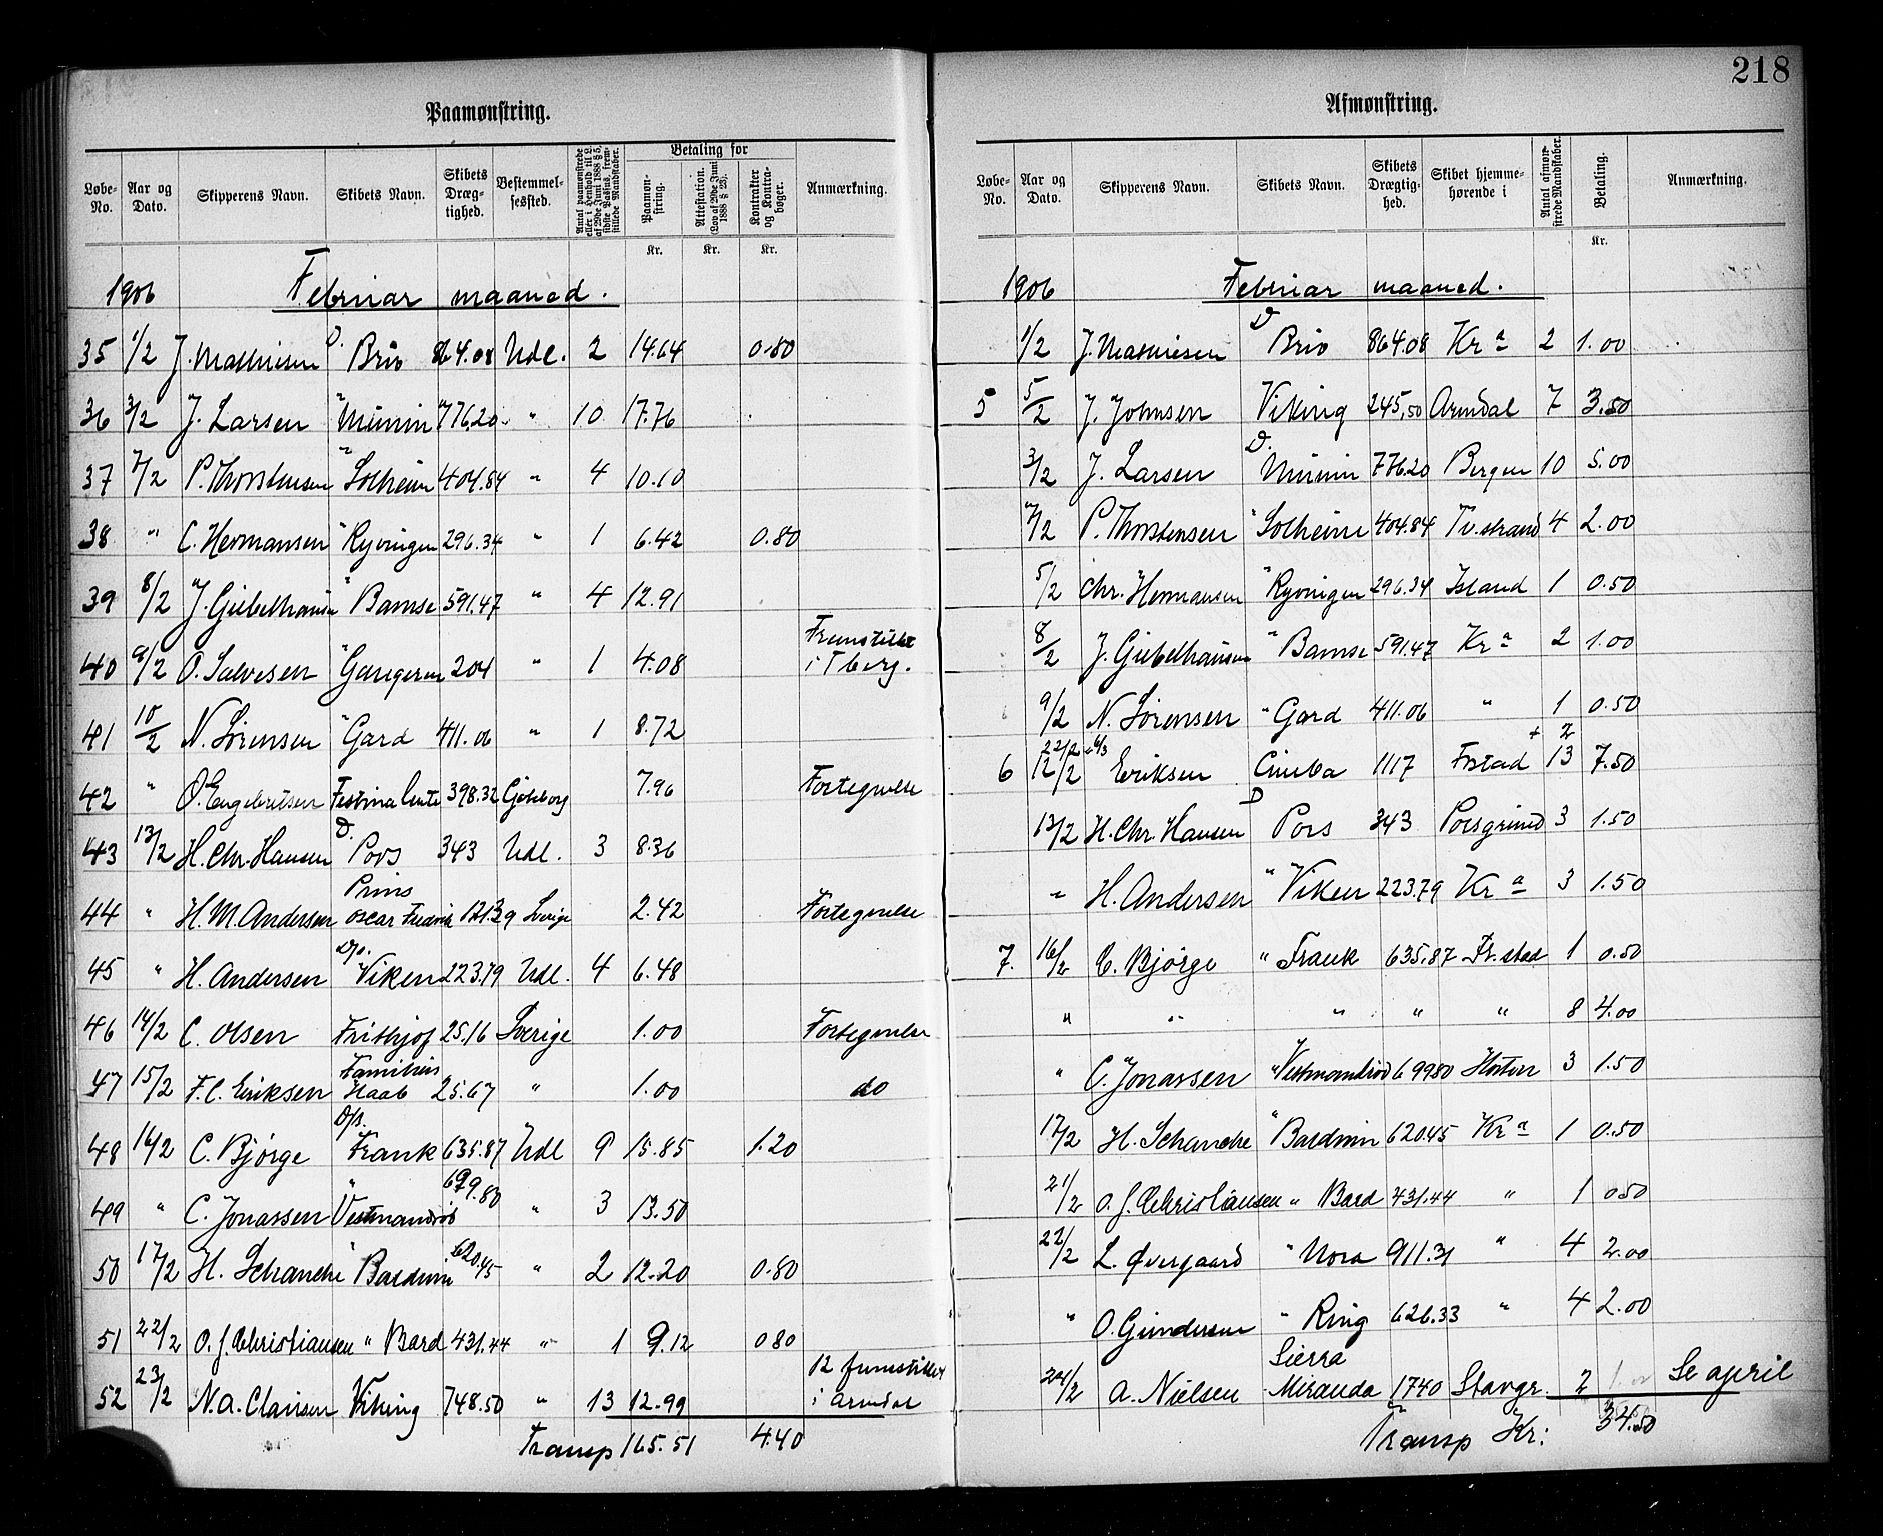 218
Paamønstring.
Løbe-No. Aar og Dato. Skipperens Navn. Skibets Navn. Skibets Dræg-tighed. Bestemmel-sessted. Antal paamønstrede eller i Henhold til L. af 29de Juni 1888 § 5, sidste Passus, frem-stillede Mandskaber. Betaling for Paamøn-string. Attestation. (Lov af 29de Juni 1888 § 23). Kontrakter og Kontra-bøger. Anmærkning.
Kr. Kr. Kr.
1906 Februar maaned.
35 1/2 J. Mathiesen D. Brio 864.08 Udl. 2 14.64 0.80
36 3/2 J. Larsen " Munin 776.20 " 10 17.76
37 7/2 P. Thorstensen " Solheim 404.84 " 4 10.10
38 " C. Hermansen " Ryvingen 296.34 " 1 6.42 0.80
39 8/2 J. Giebelhausen " Bamse 591.47 " 4 12.91
40 9/2 O. Salvesen " Gangeren 204 " 1 4.08 Fremstillet i Tberg.
41 10/2 N. Sörensen " Gard 411.06 " 1 8.72
42 " O. Engebretsen Festina lente 398.32 Gøteborg 7.96 Fortegnelse
43 13/2 H. Chr. Hansen D. Pors 343 Udl. 3 8.36
44 " H. M. Andersen Prins Oscar Fredrik 121.39 Sverige 2.42 Fortegnelse
45 " H. Andersen D/s. Viken 223.79 Udl. 4 6.48
46 14/2 C. Olsen Frithjof 25.16 Sverige 1.00 Fortegnelse
47 15/2 F. C. Eriksen Familiens Haab 25.67 " 1.00 do
48 16/2 C. Bjørge D/s. Frank 635.87 Udl 9 15.85 1.20
49 " C. Jonassen " Vestmanrod 699.80 " 3 13.50
50 17/2 H. Schanche " Bardwin 620.45 " 2 12.20 0.80
51 22/2 O. J. Christiansen " Bard 431.44 " 1 9.12 0 80
52 23/2 N. A. Clausen Viking 748.50 " 13 12.99 12 fremstillet i Arendal
Transp 165.51 4.40
Afmønstring.
Løbe-No. Aar og Dato. Skipperens Navn. Skibets Navn. Skibets Drægtig-hed. Skibet hjemme-hørende i Antal afmøn-strede Mandskaber. Betaling. Anmærkning.
Kr.
1906 Februar maaned.
1/2 J. Mathiesen D Brio 864.08 Kr a 2 1.00
5 5/2 J. Johnsen Viking 245,50 Arendal 7 3.50
3/2 J. Larsen D. Munin 776.20 Bergen 10 5.00
7/2 P. Thorstensen " Solheim 404.84 Tv.strand 4 2.00
5/2 Chr. Hermansen " Ryvingen 296.34 Island 1 0.50
8/2 J. Giebelhausen " Bamse 591.47 Kr a 2 1.00
9/2 N. Sörensen " Gard 411.06 " 1 0.50
6 12/2 22/2 6/3 Eriksen Cimba 1117 Frstad 13 + 2 7.50
13/2 H. Chr. Hansen D Pors 343 Porsgrund 3 1.50
" H. Andersen " Viken 223.79 Kr a 3 1.50
7. 16/2 C. Bjørge " Frank 635.87 Fr.stad 1 0.50
" " " " " 8 4.00
" C. Jonassen " Vestmanrod 699 80 Horten 3 1.50
17/2 H. Schanche " Bardwin 620.45 Kr a 1 0.50
21/2 O. J. Christiansen " Bard 431.44 " 1 0.50
22/2 L. Øvergaard " Nora 911.31 " 4 2.00
" O. Gundersen " Ring 626.33 " 4 2.00
24/2 A. Nielsen Sierra Miranda 1740 Stavgr. 2 Se april
Transp Kr: 34.50